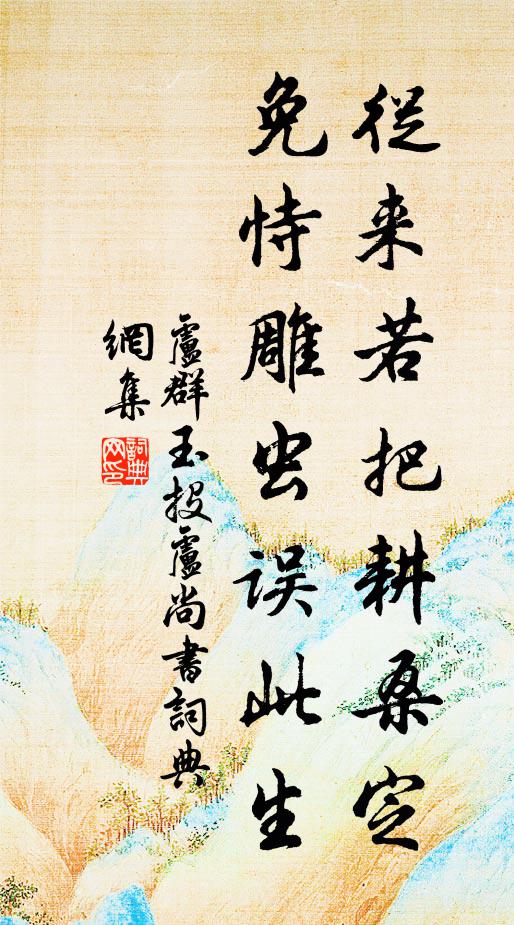 從来若把耕桑定
免恃雕虫误此生
盧群玉投盧尚書詞典
網集
詞典
网印